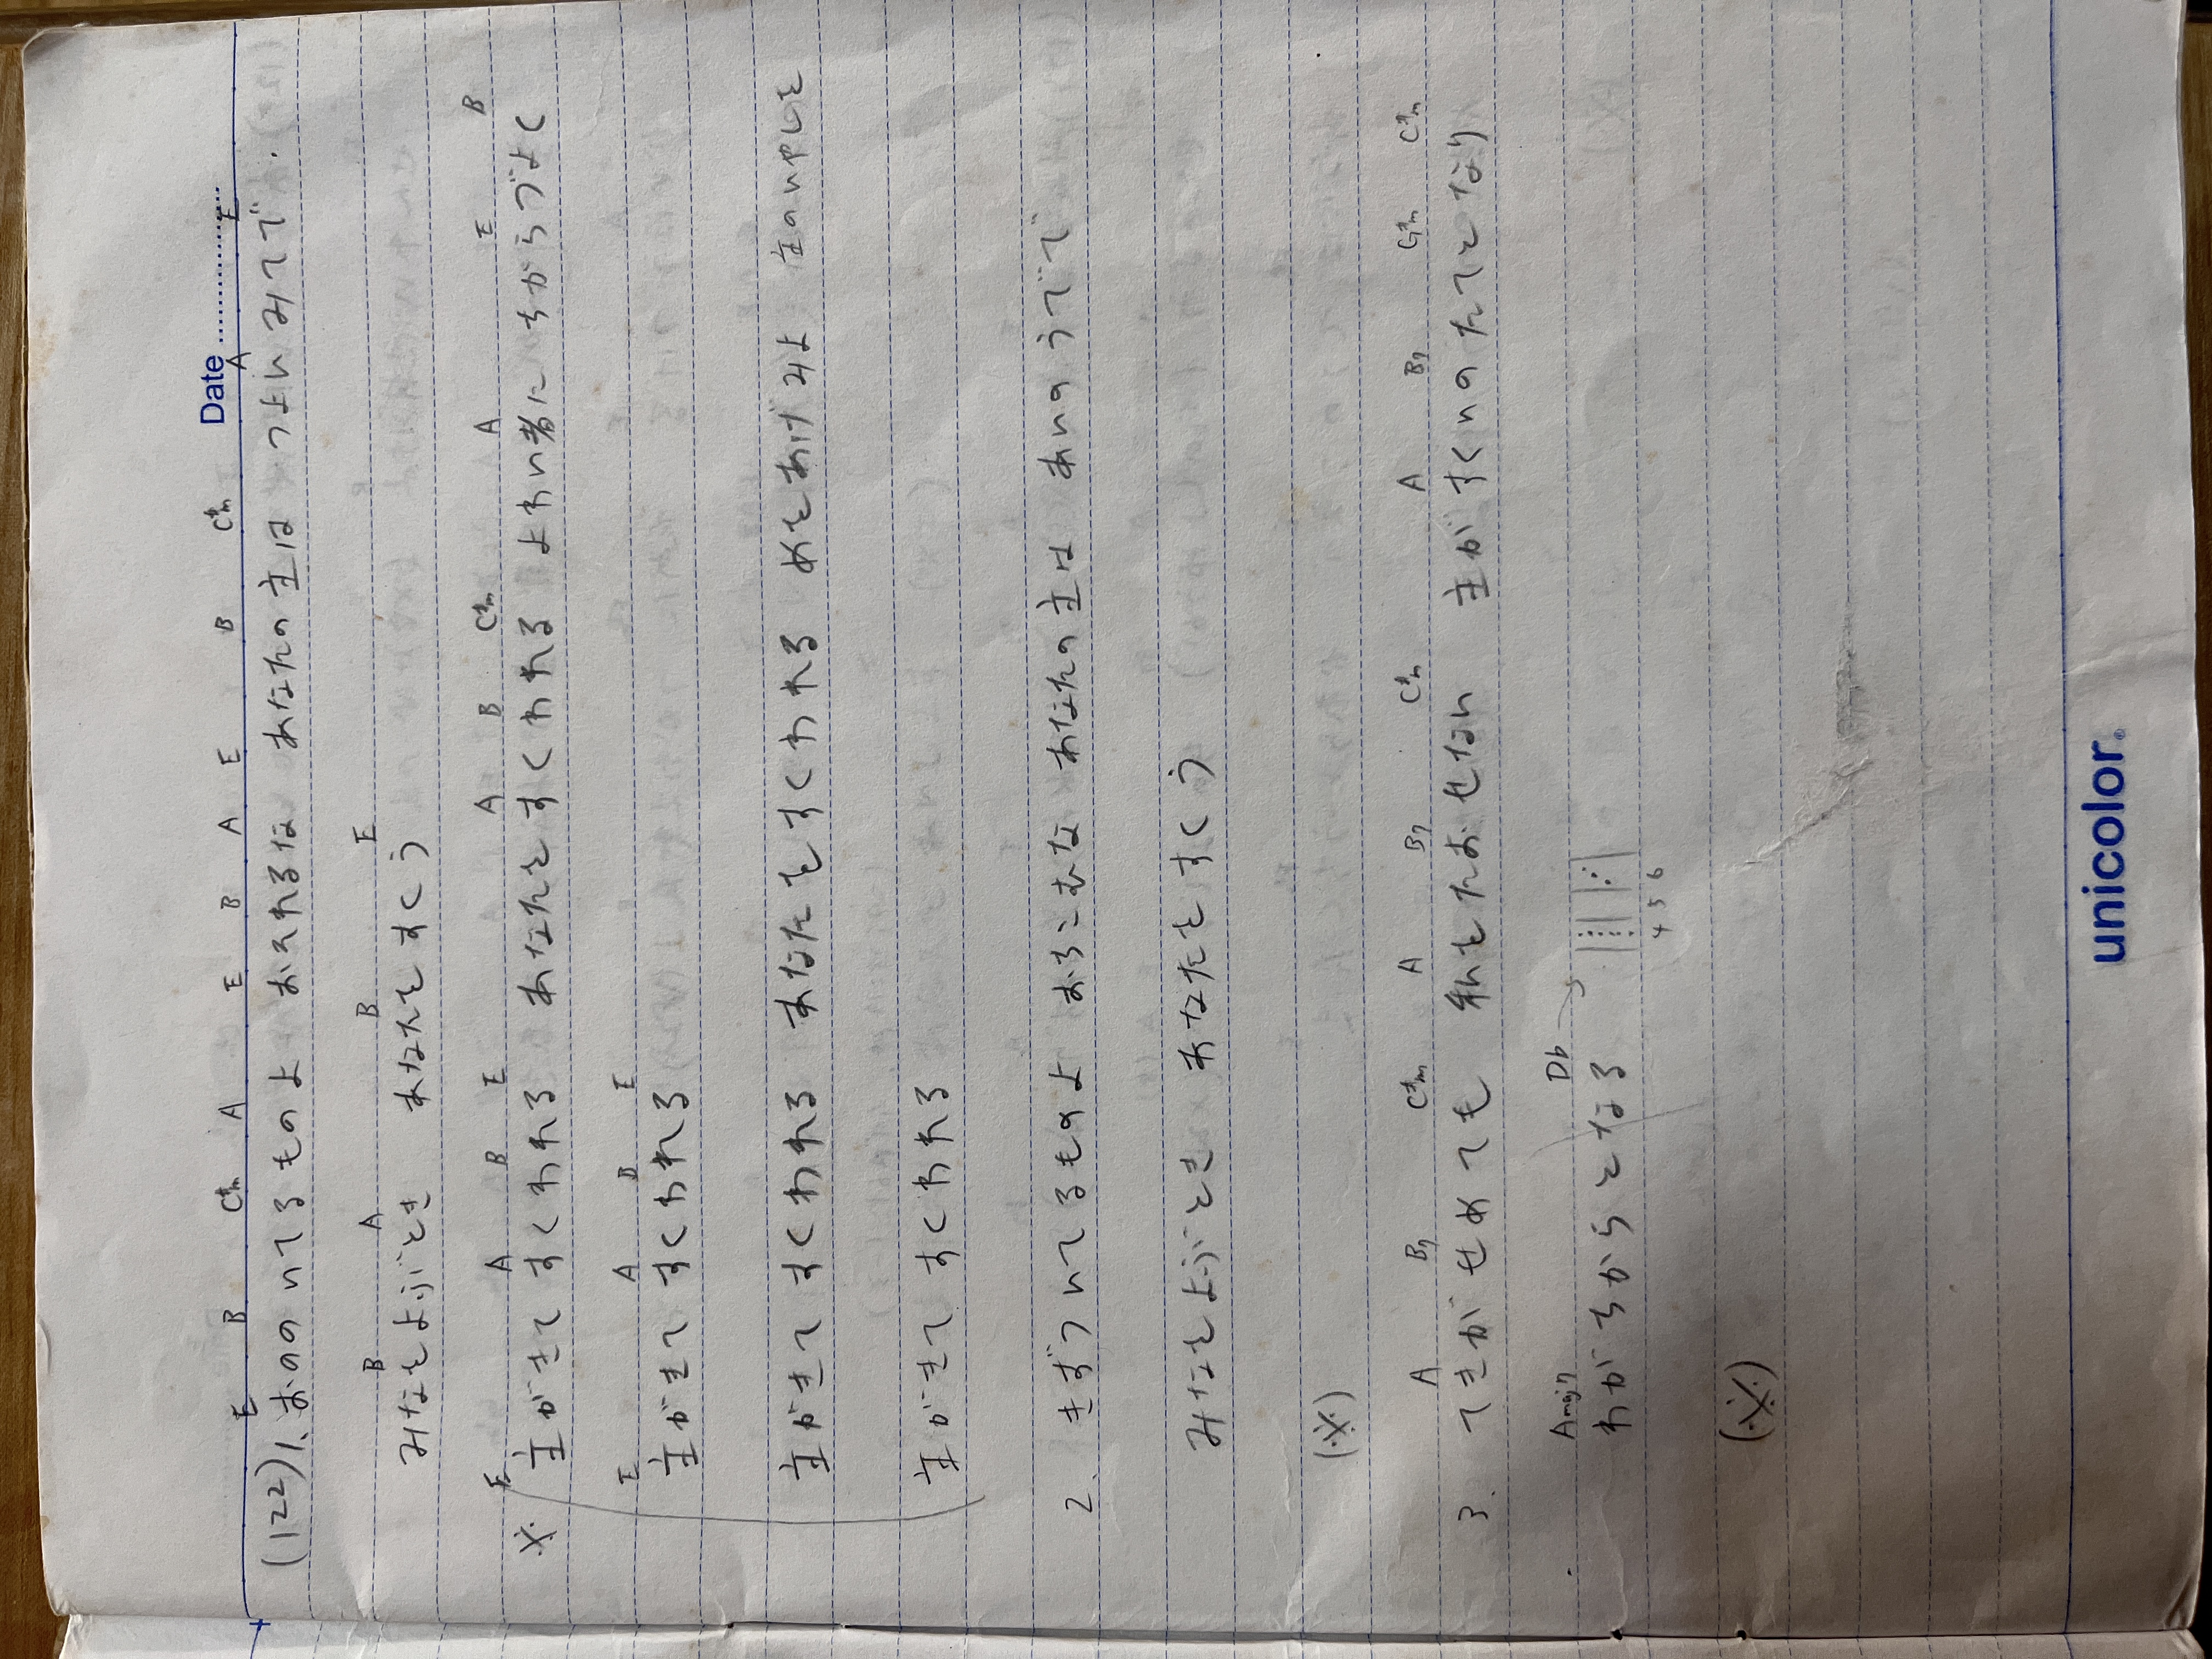 Date
E B C#m A E B A E B C#m A E
(122) 1. おののいてるものよ おそれるな あなたの主は つよいみてで.
B A B E
みなをよぶとき あなたをすくう
E A B E A B C#m A E B
※ 主がきて すくわれる あなたをすくわれる よわい者に ちからづよく
E A B E
主がきて すくわれる
主がきて すくわれる あなたをすくわれる めをあげみよ 主のいやしを
主がきて すくわれる
2. きずついてるものよ おちこむな あなたの主は あいのうでで
みなをよぶとき あなたをすくう
(※)
A B7 C#m A B7 C#m A B7 G#m C#m
3. てきがせめても 私をたおせない 主がすくいのたてとなり
Amaj7 Db →
わがちからとなる
4 5 6
(※)
unicolor®